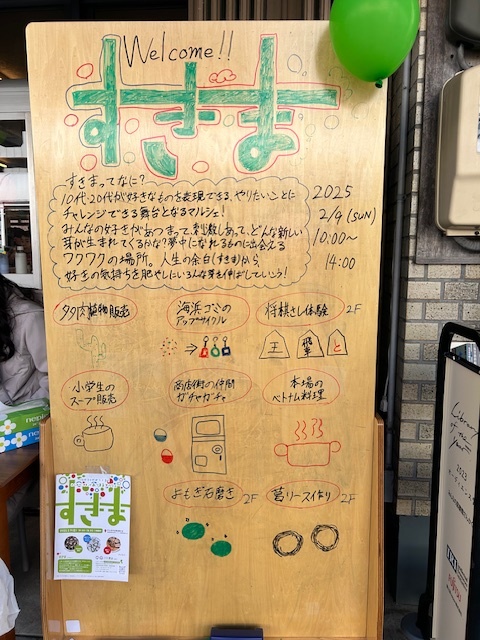 Welcome!!
すきま
すきまってなに?
10代・20代が好きなものを表現できる、やりたいことに
チャレンジできる舞台となるマルシェ!
みんなの好きがあつまって、刺激しあって、どんな新しい
芽が生まれてくるかな?夢中になれるものに出会える
ワクワクの場所。人生の余白(すきま)から
好きの気持ちを肥やしにいろんな芽を伸ばしていこう!
2025
2/4(SUN)
10:00~
14:00
多肉植物販売
海浜ゴミの
アップサイクル
将棋さし体験 2F
王 飛車 と
小学生の
スープ販売
商店街の仲間
ガチャガチャ
本場の
ベトナム料理
よもぎ石磨き 2F
葛リース作り 2F
すきま
Library
of the
Year
2023